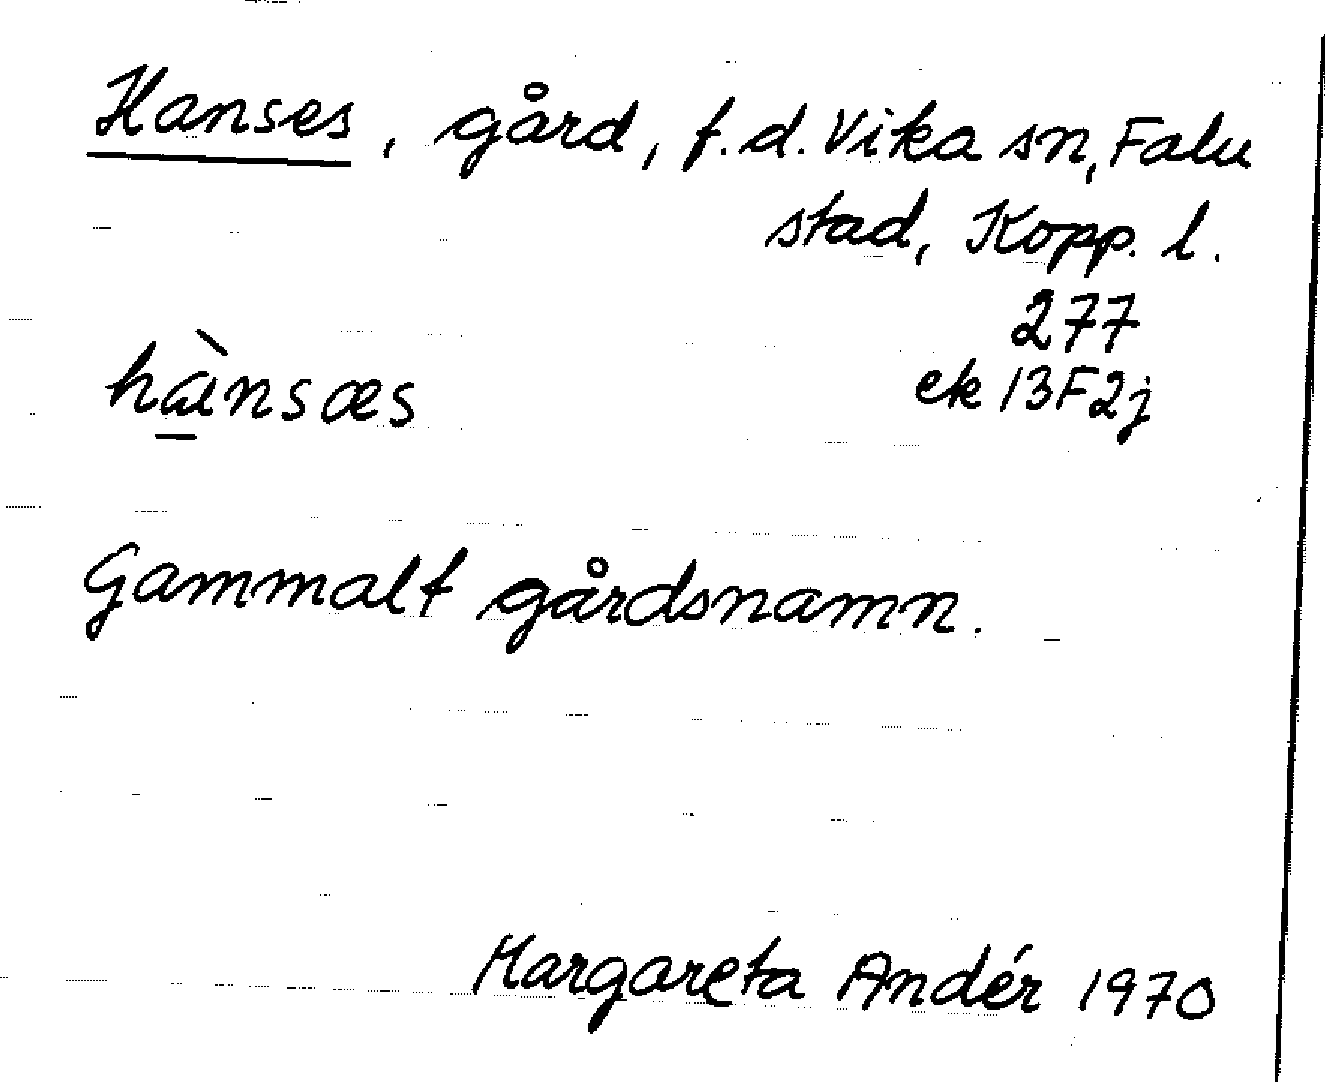 Hanses, gård, f.d. Vika sn, Falu
stad, Kopp. l.
277
ek 13F2j
hànsæs
Gammalt gårdsnamn.
Margareta Andér 1970